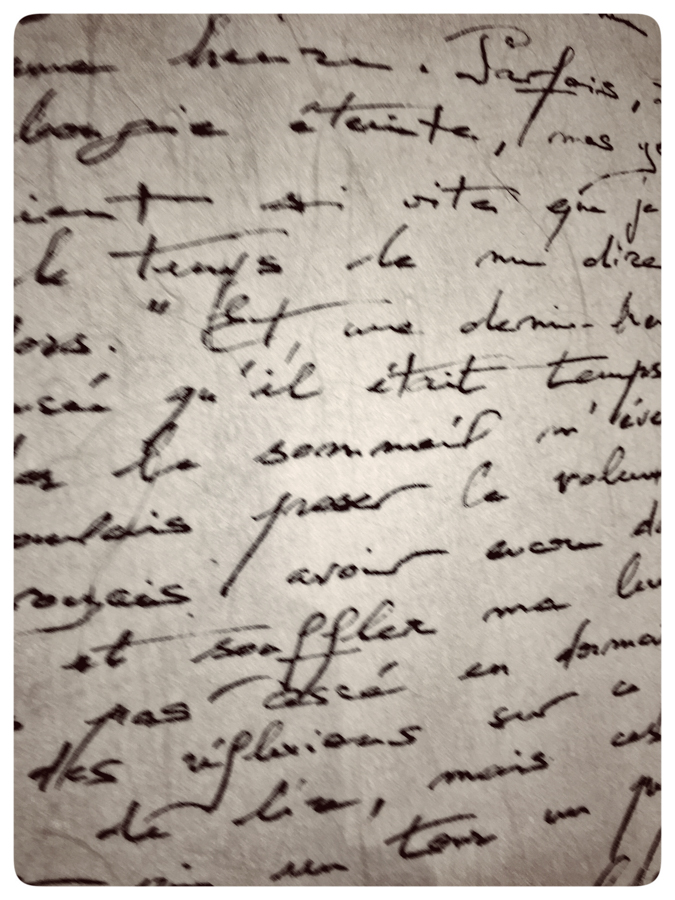 heure. Parfois,
bougie éteinte, mes
ient si vite que je
le temps de me dire
ors. " Et, une demi-he
nsée qu'il était temps
her le sommeil m'éve
oulais poser le volum
royais avoir encore da
et souffler ma lu
pas cessé en dorma
des réflexions sur ce
de lire, mais ces
un tour un p